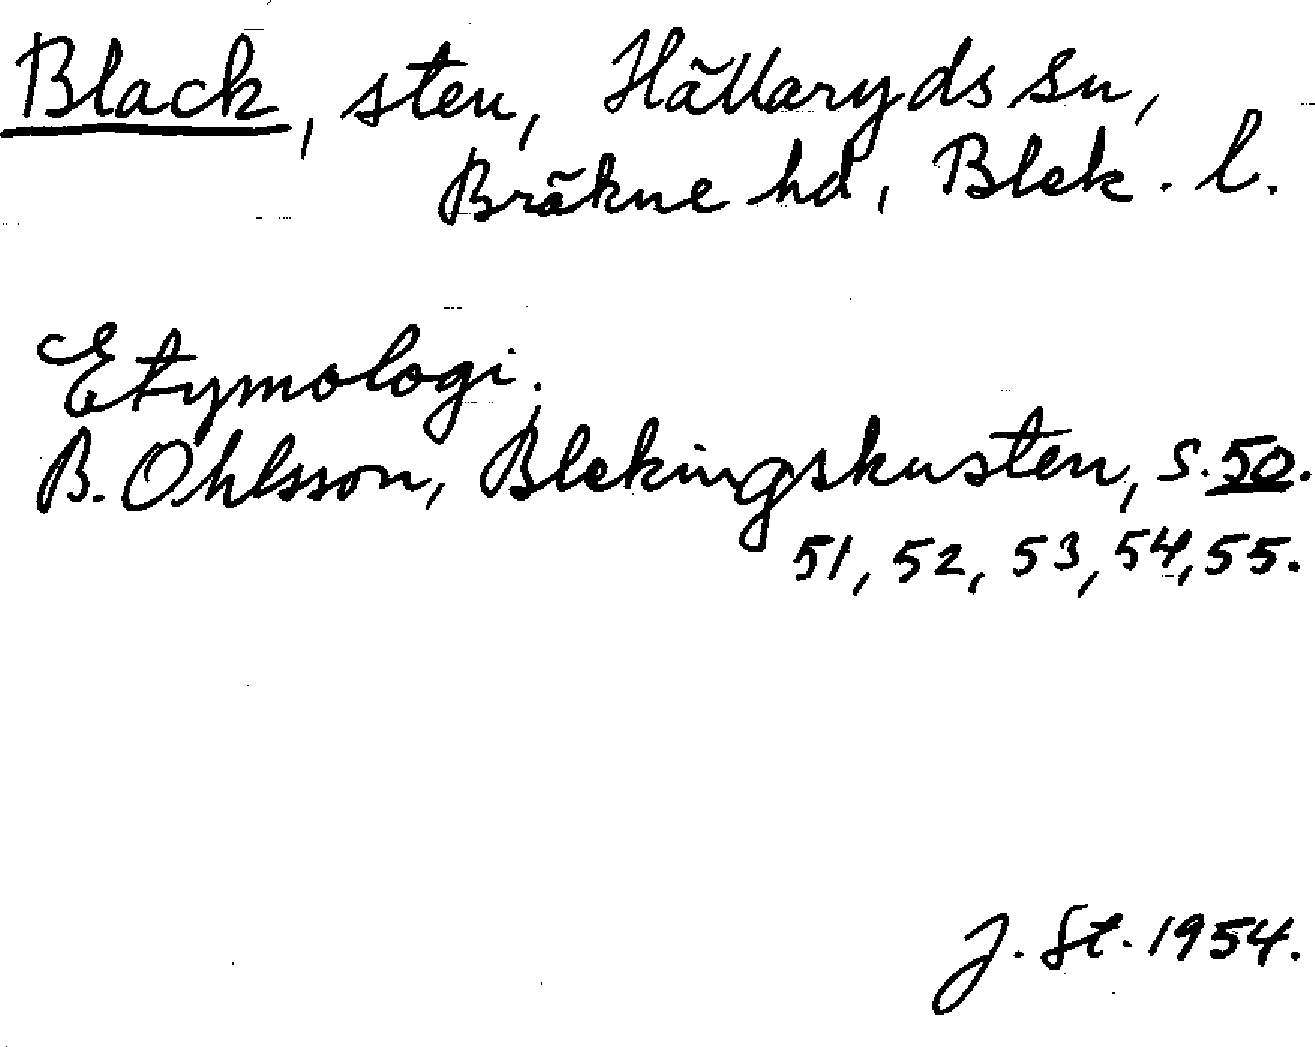 Black, sten, Hällaryds sn,
Bräkne hd, Blek. l.
Etymologi.
B. Ohlsson, Blekingskusten, s. 50.
51, 52, 53, 54, 55.
J. St. 1954.